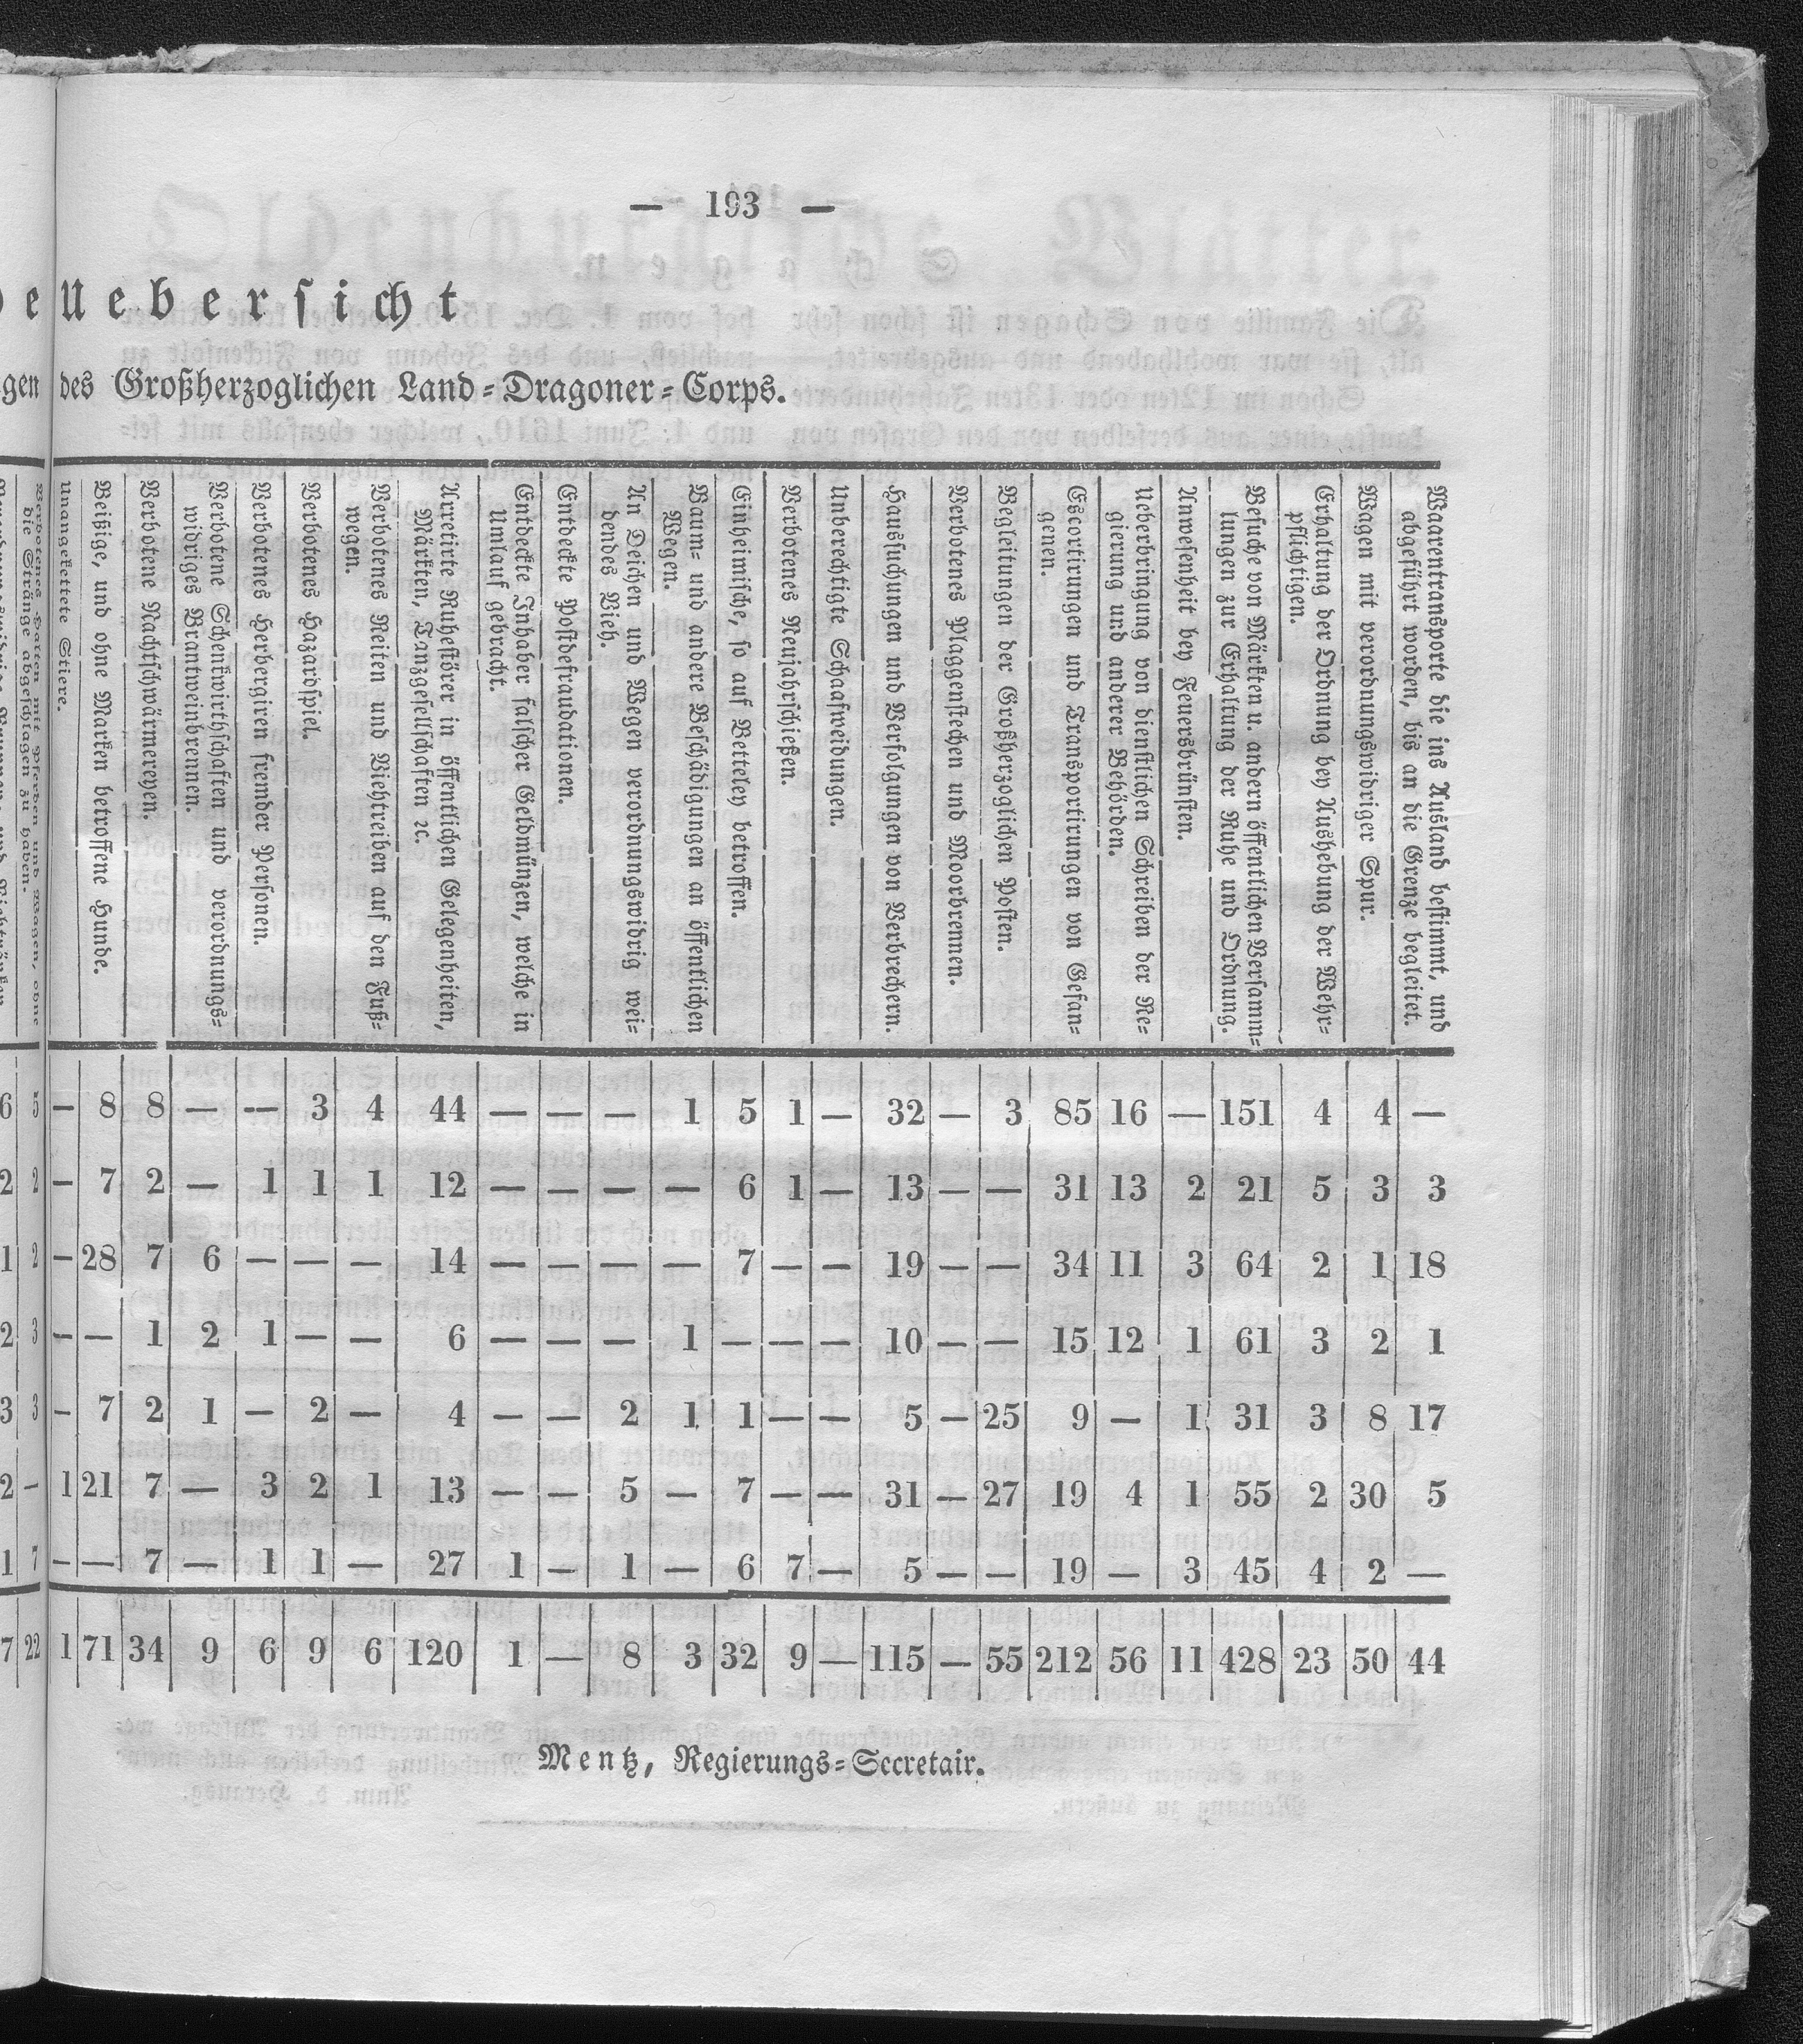 — 193 —
e Uebersicht
gen des Großherzoglichen Land=Dragoner=Corps.
Verbotenes Halten mit Pferden und Wagen, ohne
die Stränge abgeschlagen zu haben.
Unangekettete Stiere.
Beißige, und ohne Marken betroffene Hunde.
Verbotene Nachtschwärmereyen.
Verbotene Schenkwirthschaften und verordnungs=
widriges Brantweinbrennen.
Verbotenes Herbergiren fremder Personen.
Verbotenes Hazardspiel.
Verbotenes Reiten und Viehtreiben auf den Fuß=
wegen.
Arretirte Ruhestörer in öffentlichen Gelegenheiten,
Märkten, Tanzgesellschaften ꝛc.
Entdeckte Inhaber falscher Geldmünzen, welche in
Umlauf gebracht.
Entdeckte Postdefraudationen.
An Deichen und Wegen verordnungswidrig wei=
dendes Vieh.
Baum= und andere Beschädigungen an öffentlichen
Wegen.
Einheimische, so auf Betteley betroffen.
Verbotenes Neujahrschießen.
Unberechtigte Schaafweidungen.
Haussuchungen und Verfolgungen von Verbrechern.
Verbotenes Plaggenstechen und Moorbrennen.
Begleitungen der Großherzoglichen Posten.
Escortirungen und Transportirungen von Gefan=
genen.
Ueberbringung von dienstlichen Schreiben der Re=
gierung und anderer Behörden.
Anwesenheit bey Feuersbrünsten.
Besuche von Märkten u. andern öffentlichen Versamm=
lungen zur Erhaltung der Ruhe und Ordnung.
Erhaltung der Ordnung bey Aushebung der Wehr=
pflichtigen.
Wagen mit verordnungswidriger Spur.
Waarentransporte die ins Ausland bestimmt, und
abgeführt worden, bis an die Grenze begleitet.
6 5 — 8 8 — — 3 4 44 — — — 1 5 1 — 32 — 3 85 16 — 151 4 4 —
2 2 — 7 2 — 1 1 1 12 — — — — 6 1 — 13 — — 31 13 2 21 5 3 3
1 2 — 28 7 6 — — — 14 — — — — 7 — — 19 — — 34 11 3 64 2 1 18
2 3 — — 1 2 1 — — 6 — — — 1 — — — 10 — — 15 12 1 61 3 2 1
3 3 — 7 2 1 — 2 — 4 — — 2 1 1 — — 5 — 25 9 — 1 31 3 8 17
2 — 1 21 7 — 3 2 1 13 — — 5 — 7 — — 31 — 27 19 4 1 55 2 30 5
1 7 — — 7 — 1 1 — 27 1 — 1 — 6 7 — 5 — — 19 — 3 45 4 2 —
7 22 1 71 34 9 6 9 6 120 1 — 8 3 32 9 — 115 — 55 212 56 11 428 23 50 44
Mentz, Regierungs=Secretair.